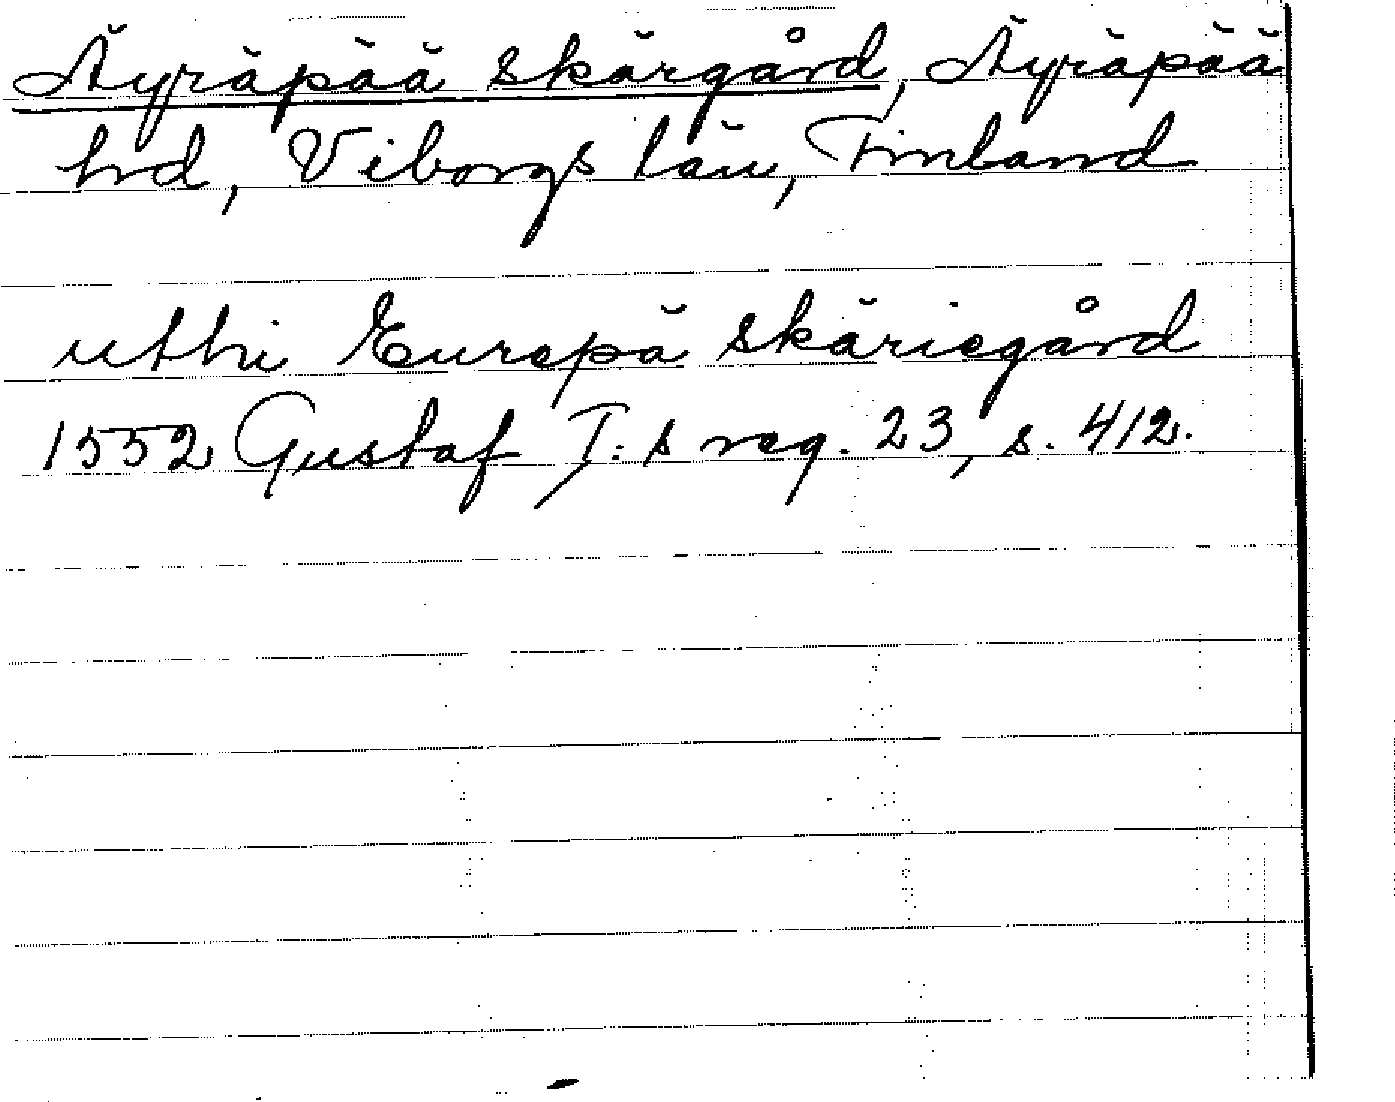 Äyräpää skärgård, Äyräpää
hrd, Viborgs län, Finland
uthi Eurepä skäriegård
1552 Gustaf I:s reg. 23, s. 412.